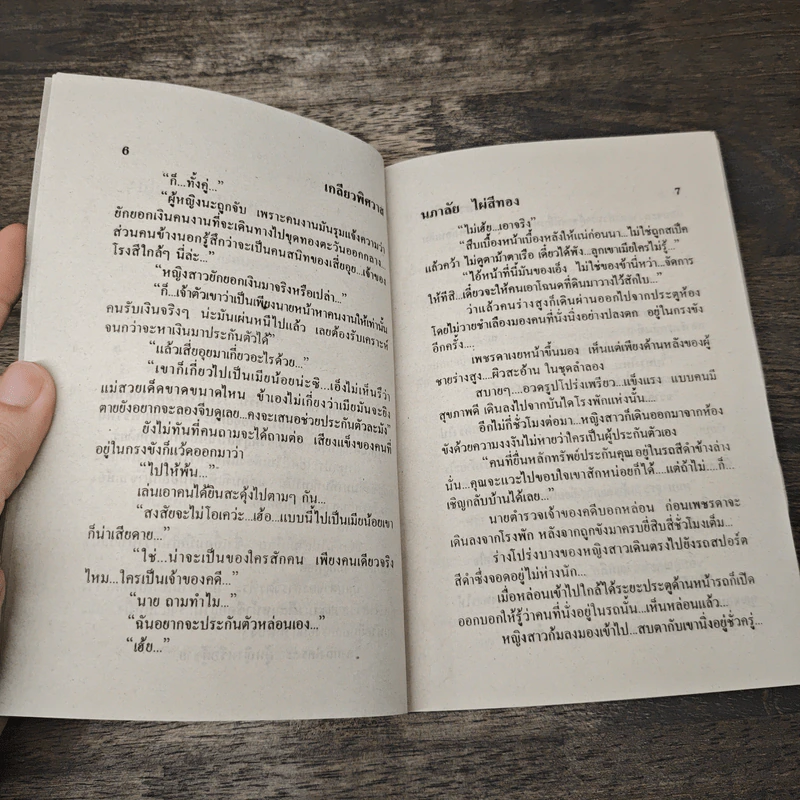 6
เกลียวพิศวาส
“ก็...ทั้งคู่...”
“ผู้หญิงนะถูกจับ เพราะคนงานมันรุมแจ้งความว่า
ยักยอกเงินคนงานที่จะเดินทางไปขุดทองตะวันออกกลาง...
ส่วนคนข้างนอกรู้สึกว่าจะเป็นคนสนิทของเสี่ยอุย...เจ้าของ
โรงสีใกล้ๆ นี่ล่ะ...”
“หญิงสาวยักยอกเงินมาจริงหรือเปล่า...”
“ก็...เจ้าตัวเขาว่าเป็นเพียงนายหน้าหาคนงานให้เท่านั้น
คนรับเงินจริงๆ น่ะมันเผ่นหนีไปแล้ว เลยต้องรับเคราะห์
จนกว่าจะหาเงินมาประกันตัวได้”
“แล้วเสี่ยอุยมาเกี่ยวอะไรด้วย...”
“เขาก็เกี่ยวไปเป็นเมียน้อยน่ะซิ...เอ็งไม่เห็นรึว่า
แม่สวยเด็ดขาดขนาดไหน ข้าเองไม่เกี่ยงว่าเมียมันจะยิง
ตายยังอยากจะลองจีบดูเลย...คงจะเสนอช่วยประกันตัวละมัง”
ยังไม่ทันที่คนถามจะได้ถามต่อ เสียงแข็งของคนที่
อยู่ในกรงขังก็แว้ดออกมาว่า
“ไปให้พ้น...”
เล่นเอาคนได้ยินสะดุ้งไปตามๆ กัน...
“สงสัยจะไม่โอเคว่ะ...เฮ้อ...แบบนี้ไปเป็นเมียน้อยเขา
ก็น่าเสียดาย...”
“ใช่...น่าจะเป็นของใครสักคน เพียงคนเดียวจริง
ไหม...ใครเป็นเจ้าของคดี...”
“นาย ถามทำไม...”
“ฉันอยากจะประกันตัวหล่อนเอง...”
“เฮ้ย...”
นภาลัย ไผ่สีทอง
7
“ไม่เฮ้ย...เอาจริง”
“สืบเบื้องหน้าเบื้องหลังให้แน่ก่อนนา...ไม่ใช่ถูกสเป็ค
แล้วคว้า ไม่ดูตาม้าตาเรือ เดี๋ยวได้พัง...ลูกเขาเมียใครไม่รู้...”
“ไอ้หน้าที่นี้มันของเอ็ง ไม่ใช่ของข้านี่หว่า...จัดการ
ให้ทีสิ...เดี๋ยวจะให้คนเอาโฉนดที่ดินมาวางไว้สักใบ...”
ว่าแล้วคนร่างสูงก็เดินผ่านออกไปจากประตูห้อง
โดยไม่วายชำเลืองมองคนที่นั่งนิ่งอย่างปลงตก อยู่ในกรงขัง
อีกครั้ง....
เพชรดาเงยหน้าขึ้นมอง เห็นแต่เพียงด้านหลังของผู้
ชายร่างสูง....ผิวสะอ้าน ในชุดลำลอง
สบายๆ....อวดรูปโปร่งเพรียว...แข็งแรง แบบคนมี
สุขภาพดี เดินลงไปจากบันไดโรงพักแห่งนั้น....
อีกไม่กี่ชั่วโมงต่อมา...หญิงสาวก็เดินออกมาจากห้อง
ขังด้วยความงงงันไม่หายว่าใครเป็นผู้ประกันตัวเอง
“คนที่ยื่นหลักทรัพย์ประกันคุณ อยู่ในรถสีดำข้างล่าง
นั่น...คุณจะแวะไปขอบใจเขาสักหน่อยก็ได้....แต่ถ้าไม่....ก็...
เชิญกลับบ้านได้เลย...”
นายตำรวจเจ้าของคดีบอกหล่อน ก่อนเพชรดาจะ
เดินลงจากโรงพัก หลังจากถูกขังมาครบยี่สิบสี่ชั่วโมงเต็ม...
ร่างโปร่งบางของหญิงสาวเดินตรงไปยังรถสปอร์ต
สีดำซึ่งจอดอยู่ไม่ห่างนัก...
เมื่อหล่อนเข้าไปใกล้ได้ระยะประตูด้านหน้ารถก็เปิด
ออกบอกให้รู้ว่าคนที่นั่งอยู่ในรถนั้น...เห็นหล่อนแล้ว...
หญิงสาวก้มลงมองเข้าไป...สบตากับเขานิ่งอยู่ชั่วครู่...